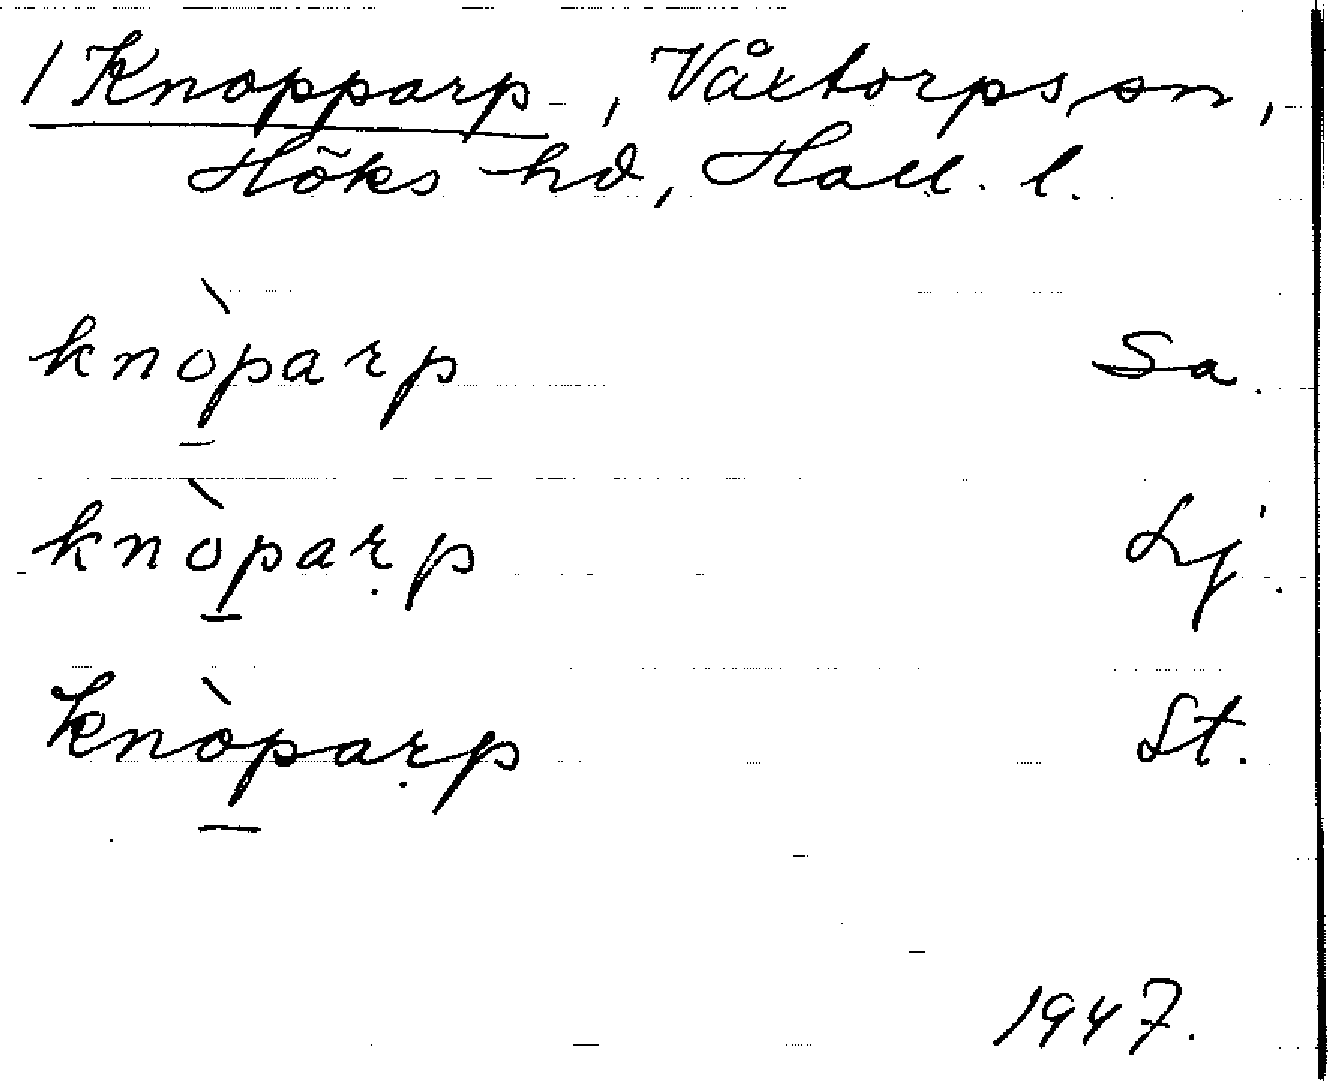 1 Knopparp, Våxtorps sn,
Höks hd, Hall. l.
knòparp Sa.
knòpaṛp Lj.
knòpaṛp St.
1947.